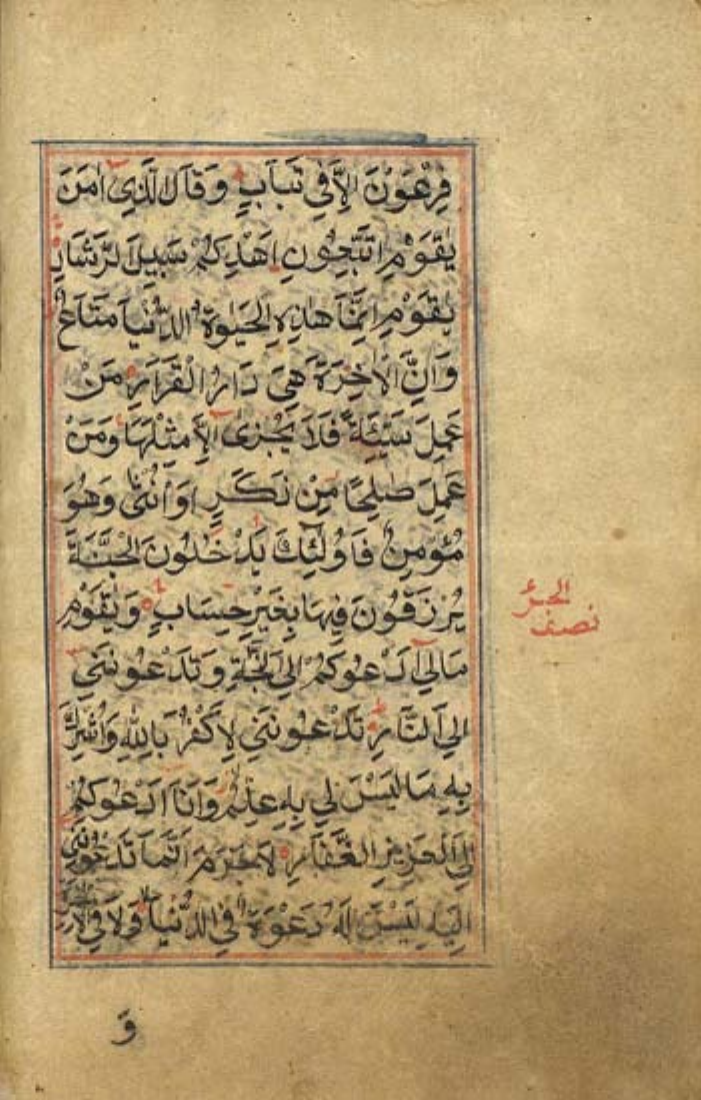 فِرْعَوْنَ اِلَّا فِي تَبَابٍ وَقَالَ الَّذِي اٰمَنَ
يٰقَوْمِ اتَّبِعُونِ اَهْدِكُمْ سَبِيلَ الرَّشَادِ
يٰقَوْمِ اِنَّمَا هٰذِهِ الْحَيٰوةُ الدُّنْيَا مَتَاعٌ
وَاِنَّ الْاٰخِرَةَ هِيَ دَارُ الْقَرَارِ مَنْ
عَمِلَ سَيِّئَةً فَلَا يُجْزٰى اِلَّا مِثْلَهَا وَمَنْ
عَمِلَ صٰلِحًا مِنْ ذَكَرٍ اَوْ اُنْثٰى وَهُوَ
مُؤْمِنٌ فَاُولٰئِكَ يَدْخُلُونَ الْجَنَّةَ
يُرْزَقُونَ فِيهَا بِغَيْرِ حِسَابٍ وَيٰقَوْمِ
مَالِي اَدْعُوكُمْ اِلَى النَّجٰوةِ وَتَدْعُونَنِي
اِلَى النَّارِ تَدْعُونَنِي لِاَكْفُرَ بِاللّٰهِ وَاُشْرِكَ
بِهِ مَا لَيْسَ لِي بِهِ عِلْمٌ وَاَنَا اَدْعُوكُمْ
اِلَى الْعَزِيزِ الْغَفَّارِ لَا جَرَمَ اَنَّمَا تَدْعُونَنِي
اِلَيْهِ لَيْسَ لَهُ دَعْوَةٌ فِي الدُّنْيَا وَلَا فِي الْاٰخِرَةِ
وَ
نصف
الجزء